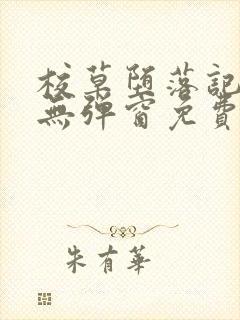 校草堕落記
無彈窗免費
朱有華